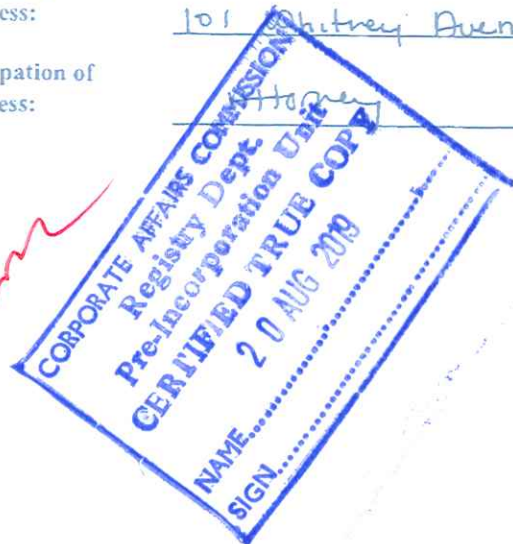 ess:
101 Whitney Aven
pation of
ess:
CORPORATE AFFAIRS COMMISSION
Registry Dept.
Pre-Incorporation Unit
CERTIFIED TRUE COPY
20 AUG 2019
NAME
SIGN